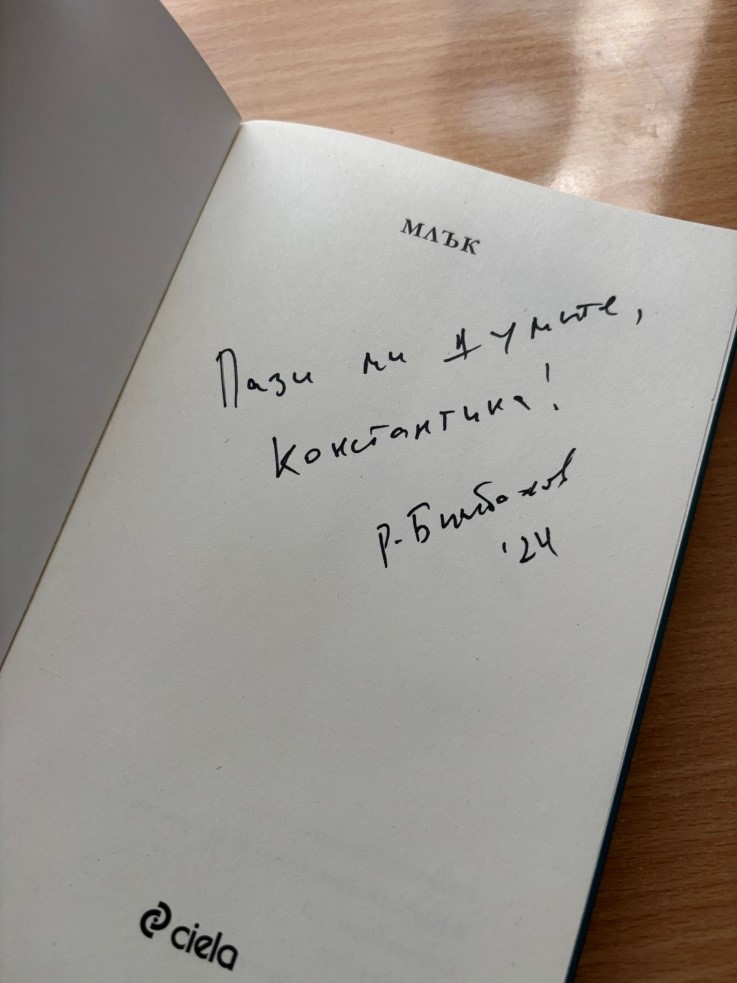 МЛЪК
Пази ми думите,
Константина!
Р. Бимбалов
'24
ciela